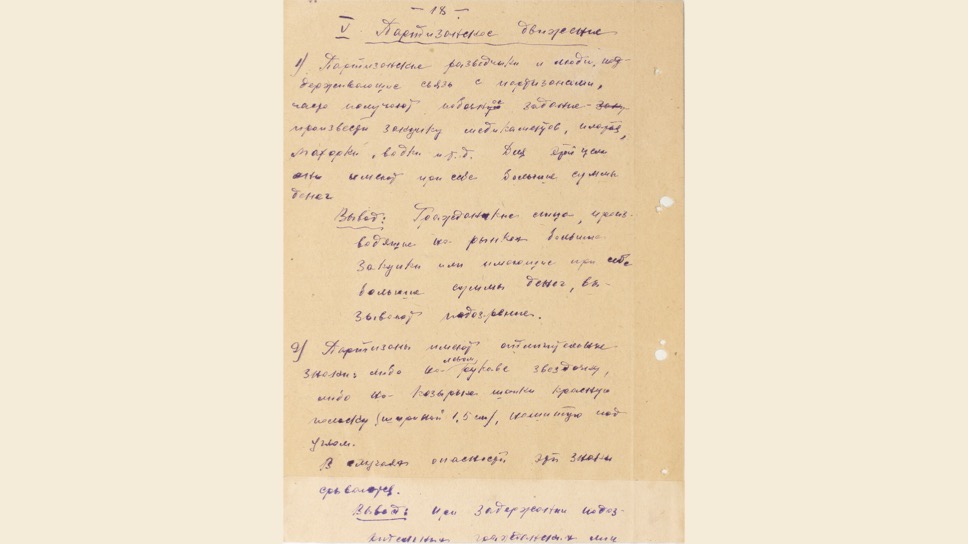 — 18 —
V Партизанское движение
1) Партизанские разведчики и люди, под-
держивающие связь с партизанами,
часто получают побочное задание
произвести закупку медикаментов,
махорки, водки и т.д. Для этой цели
они имеют при себе большие суммы
денег
Вывод: Гражданские лица, произ-
водящие на рынках большие
закупки или имеющие при себе
большие суммы денег, вы-
зывают подозрение.
2) Партизаны имеют отличительные
знаки: либо на левом рукаве звездочку,
либо на козырьке шапки красную
полоску (шириной 1,5 см), нашитую под
углом.
В случаях опасности эти знаки
срываются.
Вывод: при задержании подоз-
рительных гражданских лиц